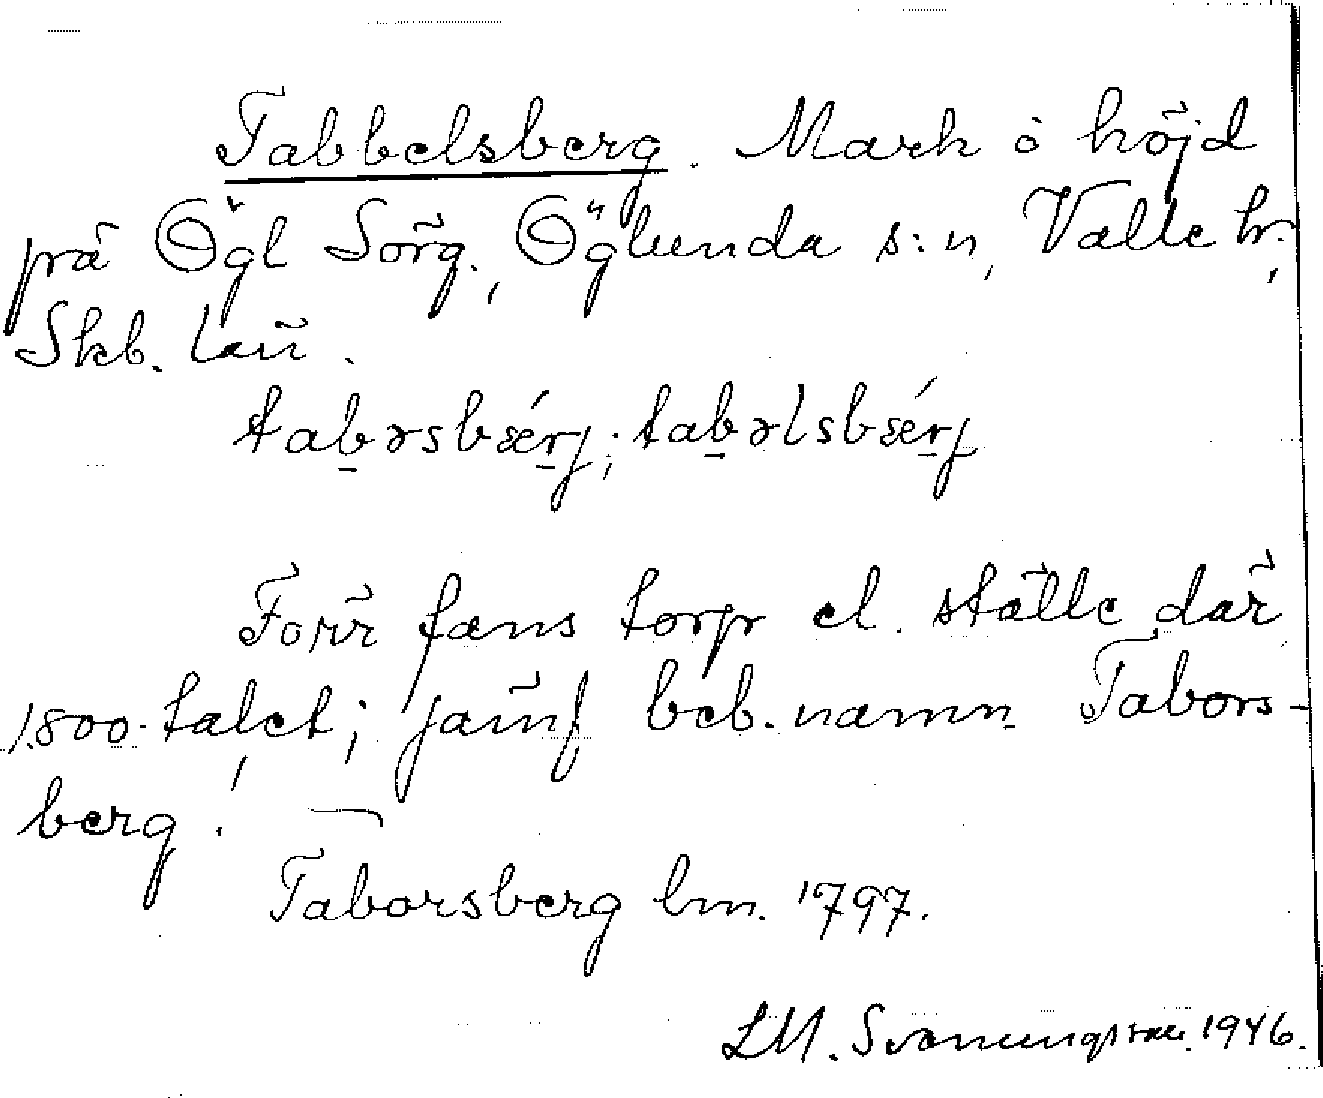 Tabbelsberg. Mark o höjd
på Ögl Sörg., Öglunda s:n, Valle hr.,
Skb. län.
tabərsbærj; tabəlsbærj
Förr fans torp el. ställe där
1800-talet; jämf beb.namn Tabors-
berg!
Taborsberg lm. 1797.
LM. Svanungsson. 1946.